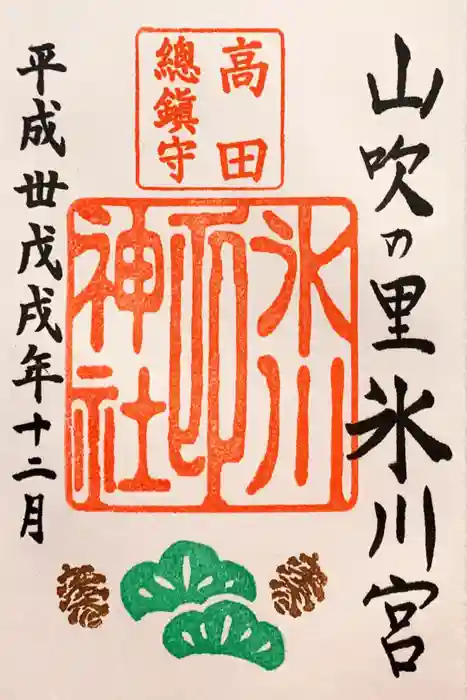 山吹の里氷川宮
高田
總鎮守
氷川
神社
印
平成丗戊戌年十二月